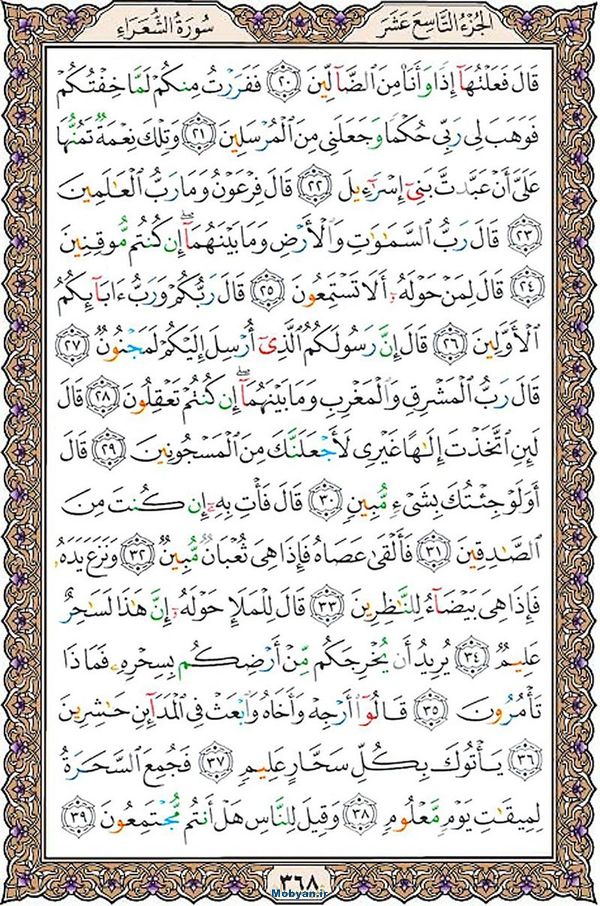 الجُزءُ التَّاسِعَ عَشَرَ
سُورَةُ الشُّعَرَاءِ
قَالَ فَعَلْتُهَآ إِذًا وَأَنَا۠ مِنَ ٱلضَّآلِّينَ ٢٠ فَفَرَرْتُ مِنكُمْ لَمَّا خِفْتُكُمْ
فَوَهَبَ لِى رَبِّى حُكْمًا وَجَعَلَنِى مِنَ ٱلْمُرْسَلِينَ ٢١ وَتِلْكَ نِعْمَةٌ تَمُنُّهَا
عَلَىَّ أَنْ عَبَّدتَّ بَنِىٓ إِسْرَٰٓءِيلَ ٢٢ قَالَ فِرْعَوْنُ وَمَا رَبُّ ٱلْعَٰلَمِينَ
٢٣ قَالَ رَبُّ ٱلسَّمَٰوَٰتِ وَٱلْأَرْضِ وَمَا بَيْنَهُمَآ ۖ إِن كُنتُم مُّوقِنِينَ
٢٤ قَالَ لِمَنْ حَوْلَهُۥٓ أَلَا تَسْتَمِعُونَ ٢٥ قَالَ رَبُّكُمْ وَرَبُّ ءَابَآئِكُمُ
ٱلْأَوَّلِينَ ٢٦ قَالَ إِنَّ رَسُولَكُمُ ٱلَّذِىٓ أُرْسِلَ إِلَيْكُمْ لَمَجْنُونٌ ٢٧
قَالَ رَبُّ ٱلْمَشْرِقِ وَٱلْمَغْرِبِ وَمَا بَيْنَهُمَآ ۖ إِن كُنتُمْ تَعْقِلُونَ ٢٨ قَالَ
لَئِنِ ٱتَّخَذْتَ إِلَٰهًا غَيْرِى لَأَجْعَلَنَّكَ مِنَ ٱلْمَسْجُونِينَ ٢٩ قَالَ
أَوَلَوْ جِئْتُكَ بِشَىْءٍ مُّبِينٍ ٣٠ قَالَ فَأْتِ بِهِۦٓ إِن كُنتَ مِنَ
ٱلصَّٰدِقِينَ ٣١ فَأَلْقَىٰ عَصَاهُ فَإِذَا هِىَ ثُعْبَانٌ مُّبِينٌ ٣٢ وَنَزَعَ يَدَهُۥ
فَإِذَا هِىَ بَيْضَآءُ لِلنَّٰظِرِينَ ٣٣ قَالَ لِلْمَلَإِ حَوْلَهُۥٓ إِنَّ هَٰذَا لَسَٰحِرٌ
عَلِيمٌ ٣٤ يُرِيدُ أَن يُخْرِجَكُم مِّنْ أَرْضِكُم بِسِحْرِهِۦ فَمَاذَا
تَأْمُرُونَ ٣٥ قَالُوٓا۟ أَرْجِهْ وَأَخَاهُ وَٱبْعَثْ فِى ٱلْمَدَآئِنِ حَٰشِرِينَ
٣٦ يَأْتُوكَ بِكُلِّ سَحَّارٍ عَلِيمٍ ٣٧ فَجُمِعَ ٱلسَّحَرَةُ
لِمِيقَٰتِ يَوْمٍ مَّعْلُومٍ ٣٨ وَقِيلَ لِلنَّاسِ هَلْ أَنتُم مُّجْتَمِعُونَ ٣٩
٣٦٨
Mobyan.ir